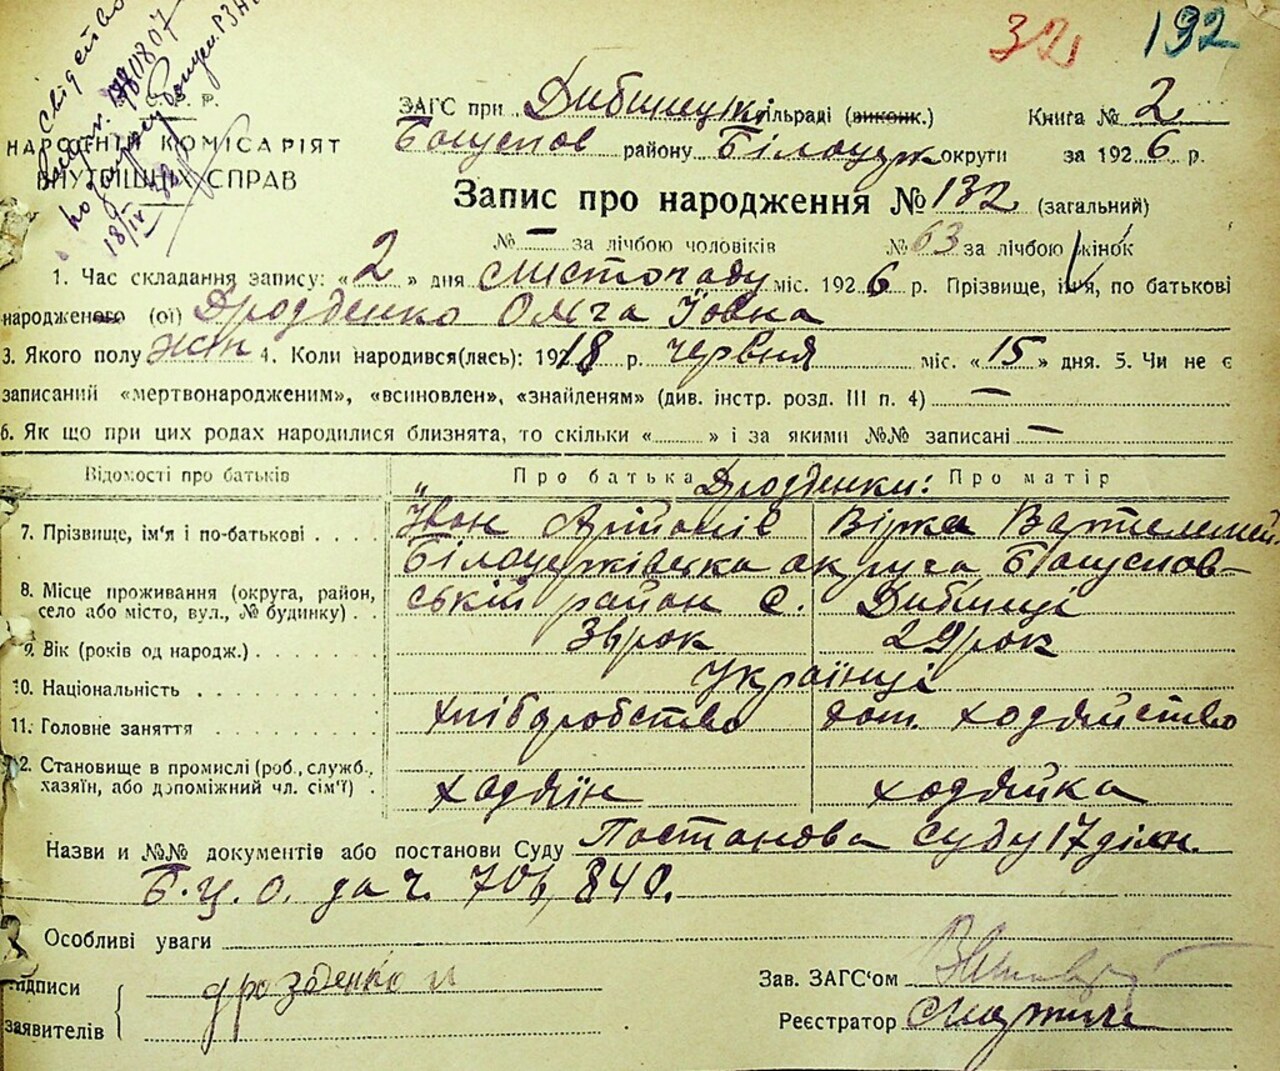 32 192
Свідетво
С. Р. Р.
НАРОДЕНИЙ КОМІСАРІЯТ
ВНУТРІШНІХ СПРАВ
ЗАГС при Дибинецькій сільраді (виконк.) Книга № 2
Богуслов району Білоцерк округи за 1926 р.
Запис про народження № 132 (загальний)
№ — за лічбою чоловіків № 63 за лічбою жінок
1. Час складання запису: «2» дня листопаду міс. 1926 р. Прізвище, ім'я, по батькові
народженого (ої) Дрозденко Ольга Їовна
3. Якого полу жін 4. Коли народився(лась): 1918 р. червня міс. «15» дня. 5. Чи не є
записаний «мертвонародженим», «всиновлен», «знайденям» (див. інстр. розд. III п. 4) —
6. Як що при цих родах народилися близнята, то скільки « » і за якими №№ записані —
Відомості про батьків Про батька Дрозденки: Про матір
7. Прізвище, ім'я і по-батькові Їван Вірка
Білоцерківська округа Богуслов-
8. Місце проживання (округа, район, ській район с. Дибинці
село або місто, вул., № будинку)
9. Вік (років од народж.) рок 29 рок
10. Національність Українці
11. Головне заняття хліборобство дом. ходяйство
12. Становище в промислі (роб., служб.,
хазяїн, або допоміжний чл. сім'ї) ходяїн ходяйка
Назви и №№ документів або постанови Суду Постанова суду 17 дільн.
Б. Ц. О. да ч. 840.
Особливі уваги
Підписи дрозденко и Зав. ЗАГС'ом
заявителів Реєстратор